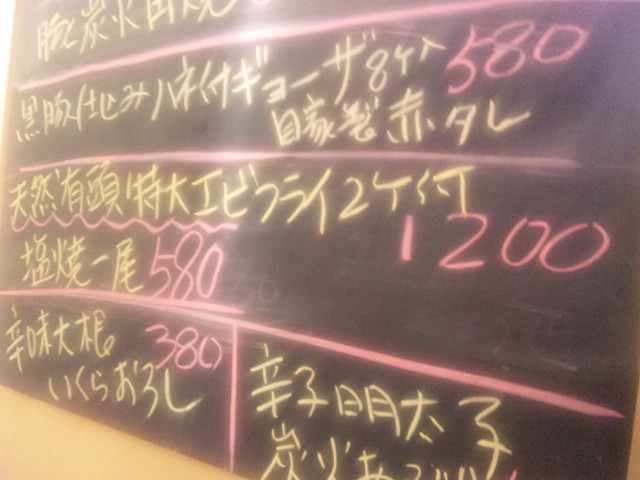 豚と炭火
黒豚仕込みハネ付ギョーザ8ケ 580
自家製赤タレ
天然有頭特大エビフライ2ケ付
1200
塩焼一尾 580
辛味大根 380
いくらおろし
辛子明太子
炭火あぶり